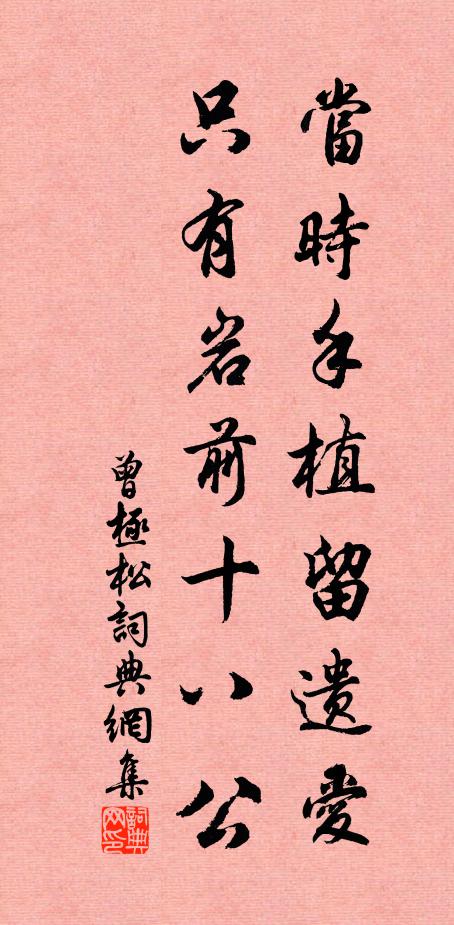 當時手植留遺愛
只有岩前十八公
曾極松詞典網集
詞典网印